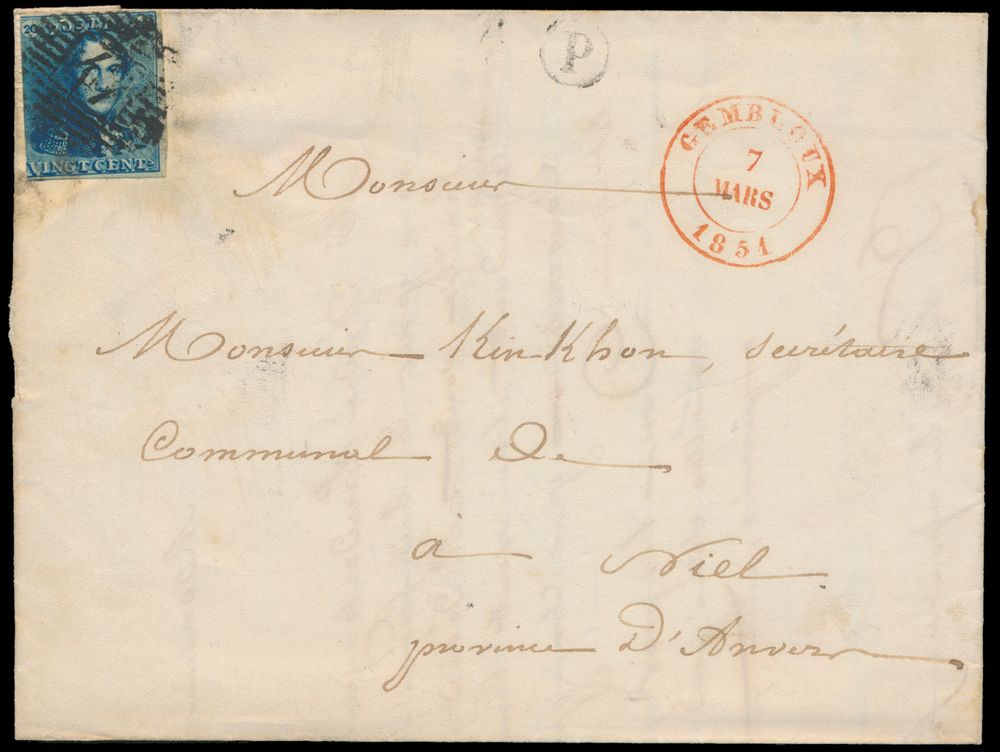 20 POSTES
VINGT CENTS
P
GEMBLOUX
7
MARS
1851
Monsieur
Monsieur Kin Khon, secrétaire
Communal De
à Niel
province D'Anvers